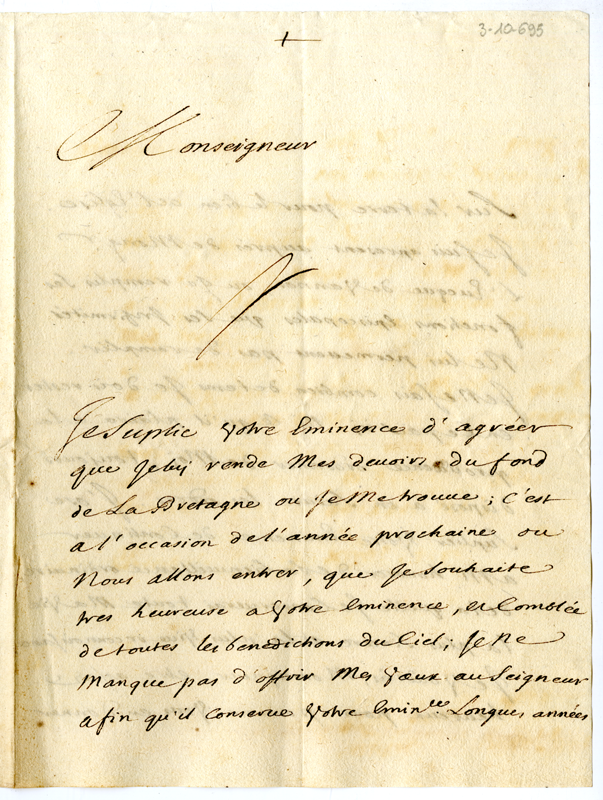 3-10-695
Monseigneur
Je suplie Votre Eminence d'agréer
que Je luy rende Mes devoirs du fond
de La Bretagne ou Je Me trouve; C'est
a l'occasion de l'année prochaine ou
Nous allons entrer, que Je souhaite
tres heureuse a Votre Eminence, et Comblée
de toutes les benedictions du Ciel; Je Ne
Manque pas d'offrir Mes Vœux au Seigneur
afin qu'il conserve Votre Emin.ce Longues années